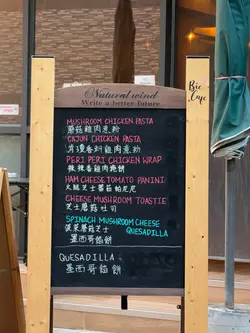 Natural wind
Write a better Future
Bic
Cafe
MUSHROOM CHICKEN PASTA
蘑菇雞肉意粉
CAJUN CHICKEN PASTA
雞肉意粉
PERI PERI CHICKEN WRAP
辣辣香雞肉捲餅
HAM CHEESE TOMATO PANINI
火腿芝士蕃茄帕尼尼
CHEESE MUSHROOM TOASTIE
芝士蘑菇吐司
SPINACH MUSHROOM CHEESE
QUESADILLA
菠菜蘑菇芝士
墨西哥餡餅
QUESADILLA
墨西哥餡餅